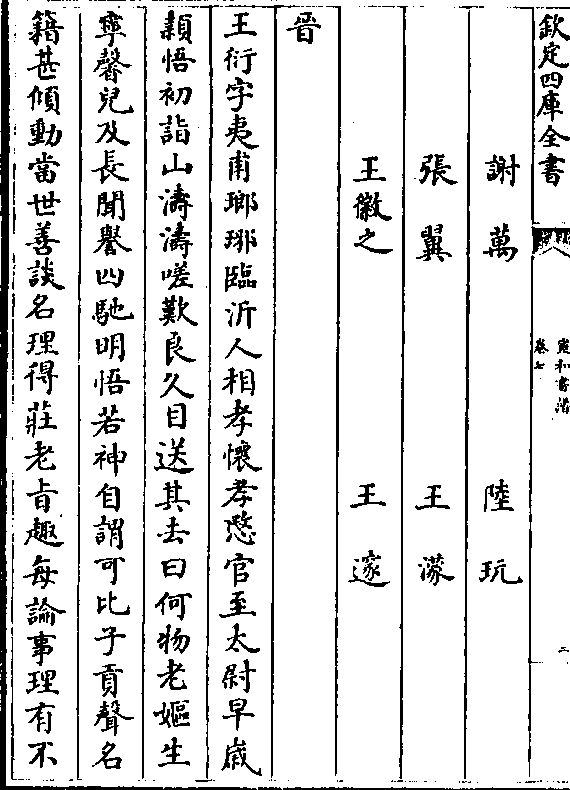 欽定四庫全書
宣和書譜
卷七
二
謝萬 陸玩
張翼 王濛
王徽之 王邃
晉
王衍字夷甫瑯琊臨沂人相孝懷孝愍官至太尉早歲
穎悟初詣山濤濤嗟歎良久目送其去曰何物老嫗生
寧馨兒及長聞譽四馳明悟若神自謂可比子貢聲名
籍甚傾動當世善談名理得莊老旨趣每論事理有不